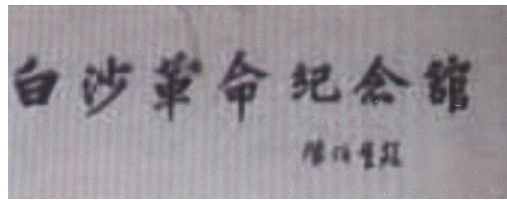 白沙革命纪念館